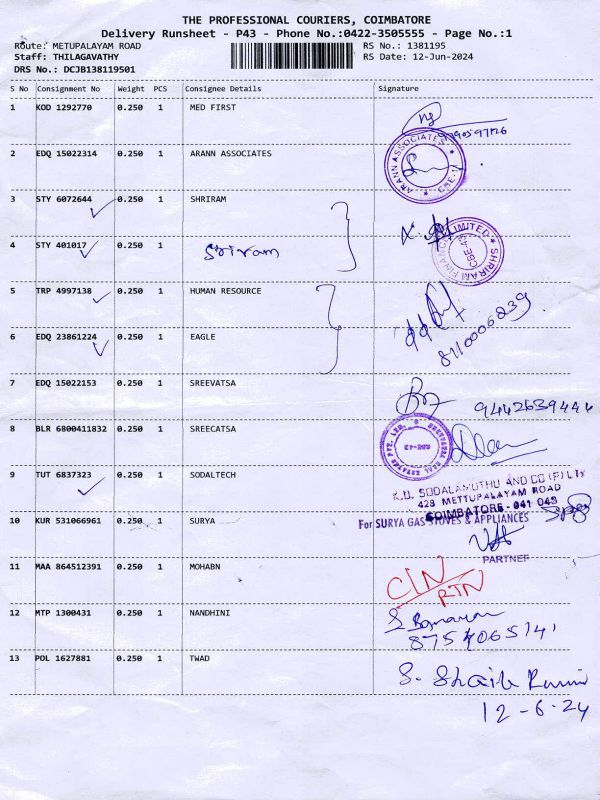 THE PROFESSIONAL COURIERS, COIMBATORE
Delivery Runsheet - P43 - Phone No.:0422-3505555 - Page No.:1
Route: METUPALAYAM ROAD RS No.: 1381195
Staff: THILAGAVATHY RS Date: 12-Jun-2024
DRS No.: DCJB138119501
S No Consignment No Weight PCS Consignee Details Signature
1 KOD 1292770 0.250 1 MED FIRST
2 EDQ 15022314 0.250 1 ARANN ASSOCIATES
ARANN ASSOCIATES
3 STY 6072644 0.250 1 SHRIRAM
4 STY 401017 0.250 1 Sriram
SHRIRAM FINANCE LIMITED
CBE-43
5 TRP 4997138 0.250 1 HUMAN RESOURCE
6 EDQ 23861224 0.250 1 EAGLE
8110006239
7 EDQ 15022153 0.250 1 SREEVATSA
9442639444
8 BLR 6800411832 0.250 1 SREECATSA
9 TUT 6837323 0.250 1 SODALTECH
K.U. SODALAMUTHU AND CO (P) LTD
428 METTUPALAYAM ROAD
COIMBATORE - 641 043
10 KUR 531066961 0.250 1 SURYA
For SURYA GAS STOVES & APPLIANCES
PARTNER
11 MAA 864512391 0.250 1 MOHABN
CIN
RTN
12 MTP 1300431 0.250 1 NANDHINI
8754065141
13 POL 1627881 0.250 1 TWAD
S. Shaik
12-6-24